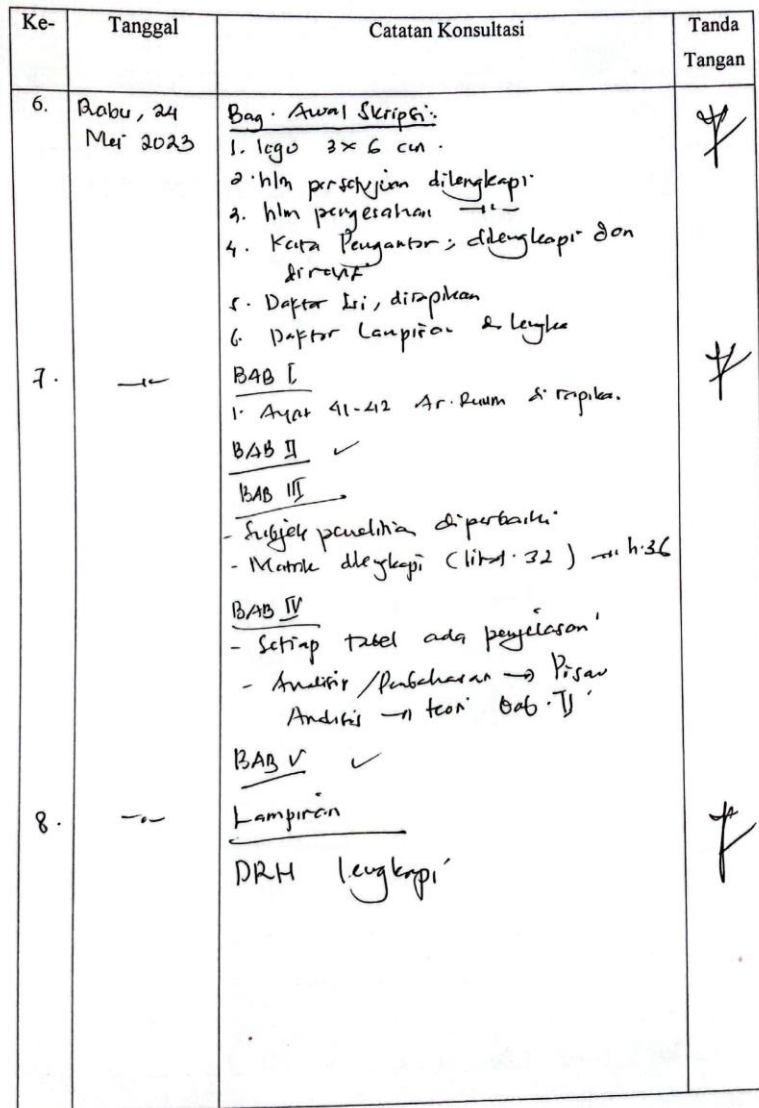 Ke- Tanggal Catatan Konsultasi Tanda Tangan
6. Rabu, 24 Mei 2023
Bag. Awal Skripsi:
1. logo 3 x 6 cm.
2. hlm persetujuan dilengkapi
3. hlm pengesahan —"—
4. Kata Pengantar; dilengkapi dan
5. Daftar Isi, dirapikan
6. Daftar Lampiran
7. —"—
BAB I
1. Ayat 41-42 Ar-Ruum
BAB II ✓
BAB III
- Subjek penelitian diperbaiki
- Matrik dilengkapi (lihat. 32) h.36
BAB IV
- Setiap tabel ada penjelasan
- Analisis/Pembahasan → Pisau
Analisis → teori Bab. II
BAB V ✓
8. —"—
Lampiran
DRH lengkapi